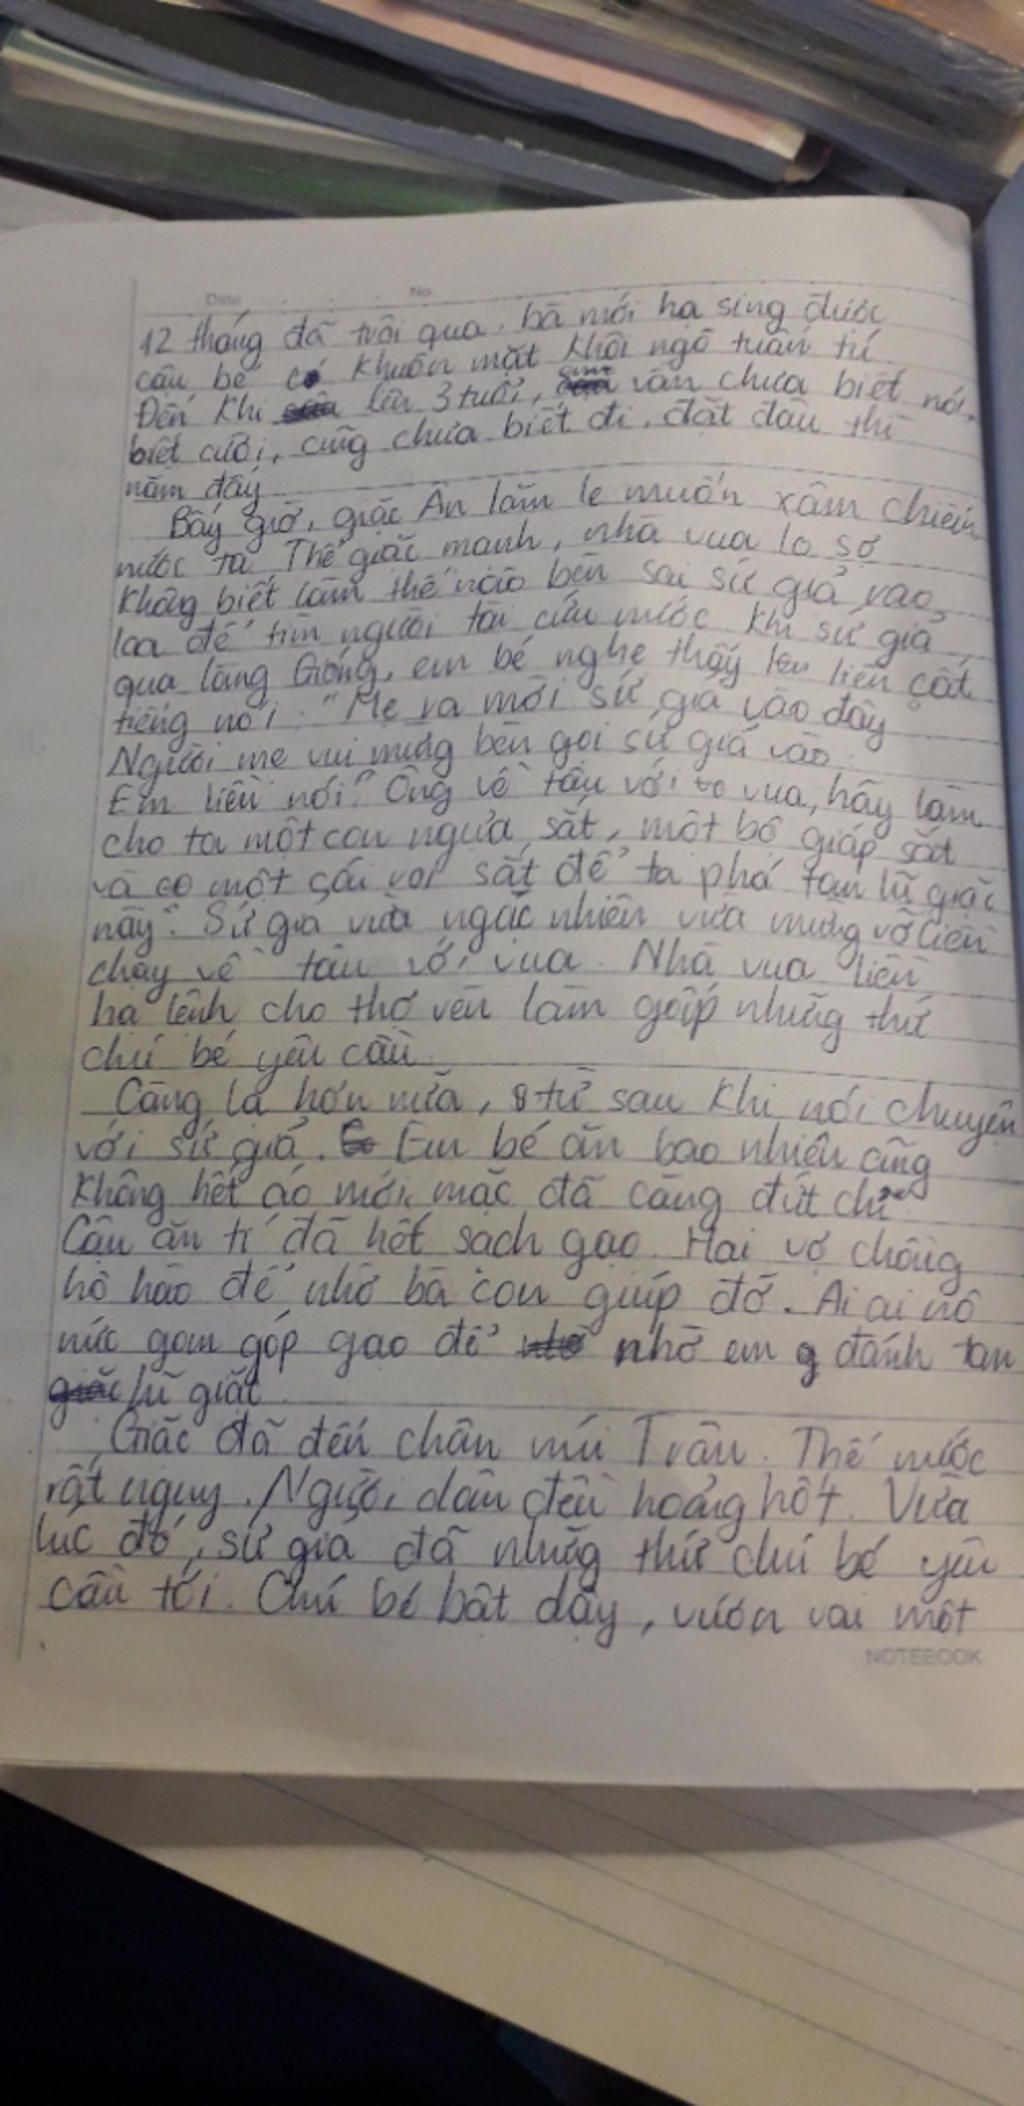 Date No.
12 tháng đã trôi qua. bà mới hạ sing được
cậu bé có khuôn mặt khôi ngô tuấn tú.
Đến khi lên 3 tuổi, vẫn chưa biết nói,
biết cười, cũng chưa biết đi, đặt đâu thì
nằm đấy
Bấy giờ, giặc Ân lăm le muốn xâm chiếm
nước ta Thế giặc mạnh, nhà vua lo sợ
không biết làm thế nào bèn sai sứ giả rao
loa để tìm người tài cứu nước Khi sứ giả
qua làng Gióng, em bé nghe thấy liền cất
tiếng nói: "Mẹ ra mời sứ giả vào đây
Người mẹ vui mừng bèn gọi sứ giả vào.
Em liền nói: "Ông về tâu với vua, hãy làm
cho ta một con ngựa sắt, một bộ giáp sắt
và một cái roi sắt để ta phá tan lũ giặc
này". Sứ giả vừa ngạc nhiên vừa mừng rỡ liền
chạy về tâu với vua. Nhà vua liền
hạ lệnh cho thợ rèn làm gấp những thứ
chú bé yêu cầu.
Càng lạ hơn nữa, từ sau khi nói chuyện
với sứ giả. Em bé ăn bao nhiêu cũng
không hết áo mới mặc đã căng đứt chỉ
Cậu ăn tí đã hết sạch gạo. Hai vợ chồng
hô hào để nhờ bà con giúp đỡ. Ai ai nô
nức gom góp gạo để nhờ em g đánh tan
lũ giặc.
Giặc đã đến chân núi Trâu. Thế nước
rất nguy. Người dân đều hoảng hốt. Vừa
lúc đó, sứ giả đã những thứ chú bé yêu
cầu tới. Chú bé bật dậy, vươn vai một
NOTEBOOK